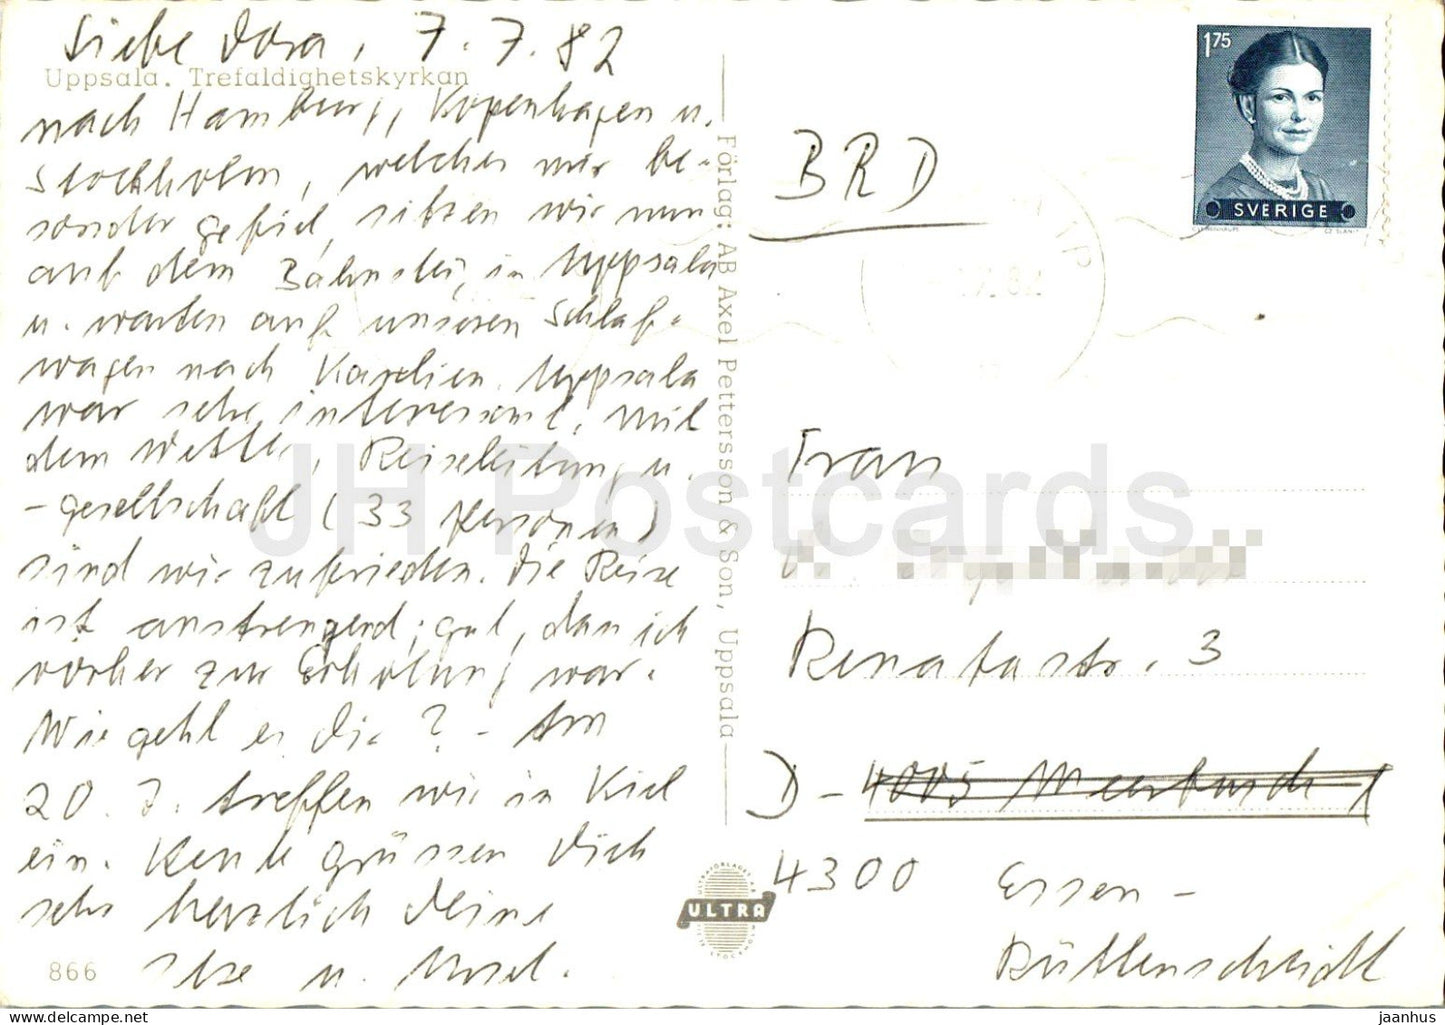 Liebe Dora, 7.7.82
Uppsala. Trefaldighetskyrkan
nach Hamburg, Kopenhagen u.
Stockholm, welches mir be-
sonders gefiel, sitzen wir nun
auf dem Bahnstei, in Uppsala
u. warten auf unseren Schlaf-
wagen nach Karelien. Uppsala
war sehr interessant. Mit
dem Wetter, Reiseleitung u.
-gesellschaft (33 Personen)
sind wir zufrieden. Die Reise
ist anstrengend; gut, dass ich
vorher zur Erholung war.
Wie geht es Dir? - Am
20.7. treffen wir in Kiel
ein. Heute grüssen Dich
sehr herzlich Deine
Ilse u.
866
Förlag: AB Axel Pettersson & Son, Uppsala
ULTRA
1 75
SVERIGE
CZ SLANIA
BRD
Frau
Renatastr. 3
D - 4005 Meerbusch 1
4300 Essen -
Rüttenscheidt
JH Postcards
jaanhus — https://www.jhpostcards.com